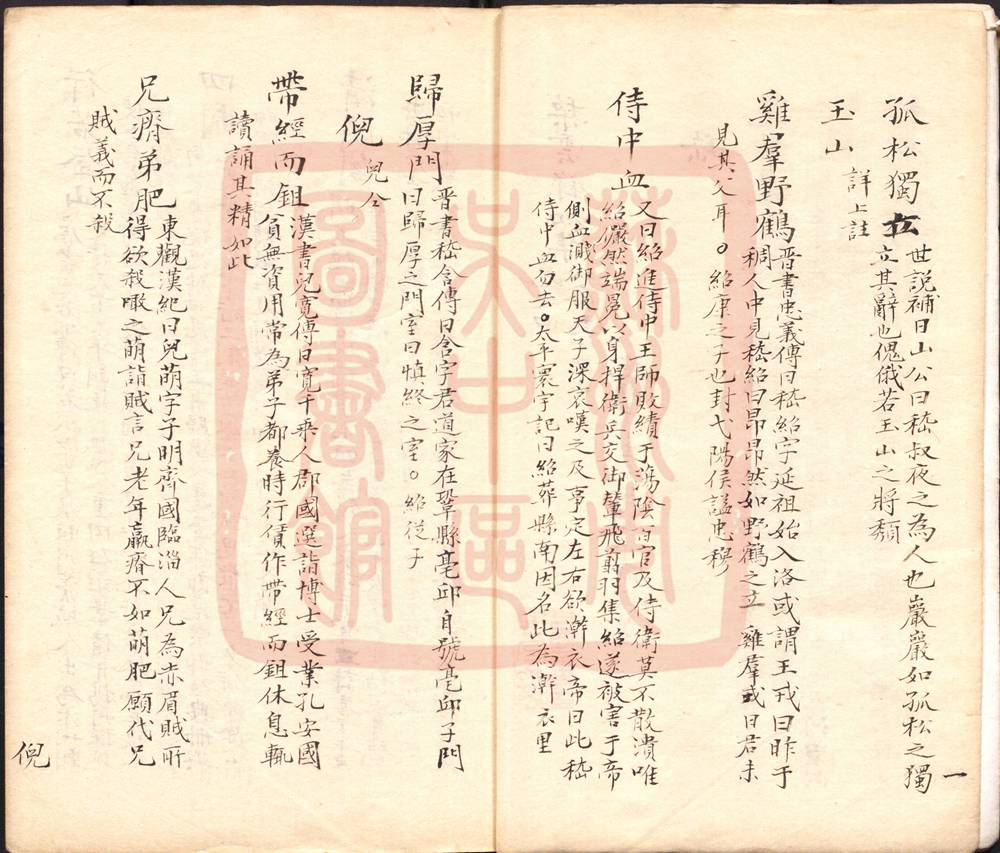 孤松獨立世說補曰山公曰嵇叔夜之為人也巖巖如孤松之獨
立其辭也傀俄若玉山之將頹
一
玉山 詳上註
雞羣野鶴晉書忠義傳曰嵇紹字延祖始入洛或謂王戎曰昨于
稠人中見嵇紹曰昂昂然如野鶴之立雞羣戎曰君未
見其父耳○紹康之子也封弋陽侯謚忠穆
侍中血又曰紹進侍中王師敗績于湯陰百官及侍衛莫不散潰唯
紹儼然端冕以身捍衛兵交御輦飛翦羽集紹遂被害于帝
側血濺御服天子深哀嘆之及事定左右欲澣衣帝曰此嵇
侍中血勿去○太平寰宇記曰紹葬縣南因名此為澣衣里
歸厚門晉書嵇含傳曰含字君道家在鞏縣亳邱自號亳邱子門
曰歸厚之門室曰慎終之室○紹從子
倪 兒仝
帶經而鉏漢書兒寬傳曰寬千乘人郡國選詣博士受業孔安國
貧無資用常為弟子都養時行賃作帶經而鉏休息輒
讀誦其精如此
兄瘠弟肥東觀漢紀曰兒萌字子明齊國臨淄人兄為赤眉賊所
得欲殺噉之萌詣賊言兄老年羸瘠不如萌肥願代兄
賊義而不殺
倪
蘇州
吳中區
圖書館